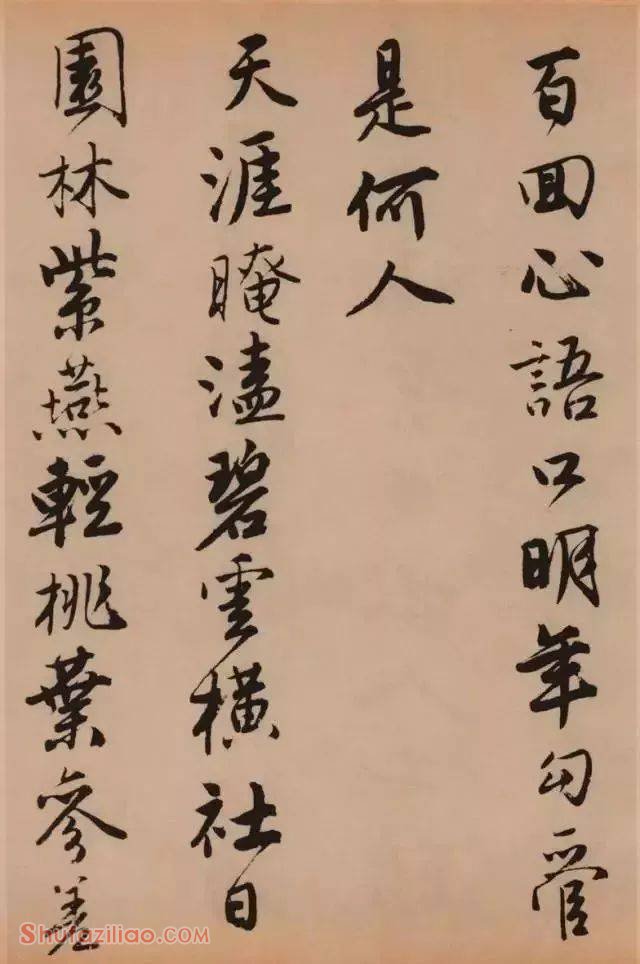 百回心語口明年勾管
是何人
天涯晻溘碧雲橫社日
園林紫燕輕桃葉參差
Shufaziliao.COM